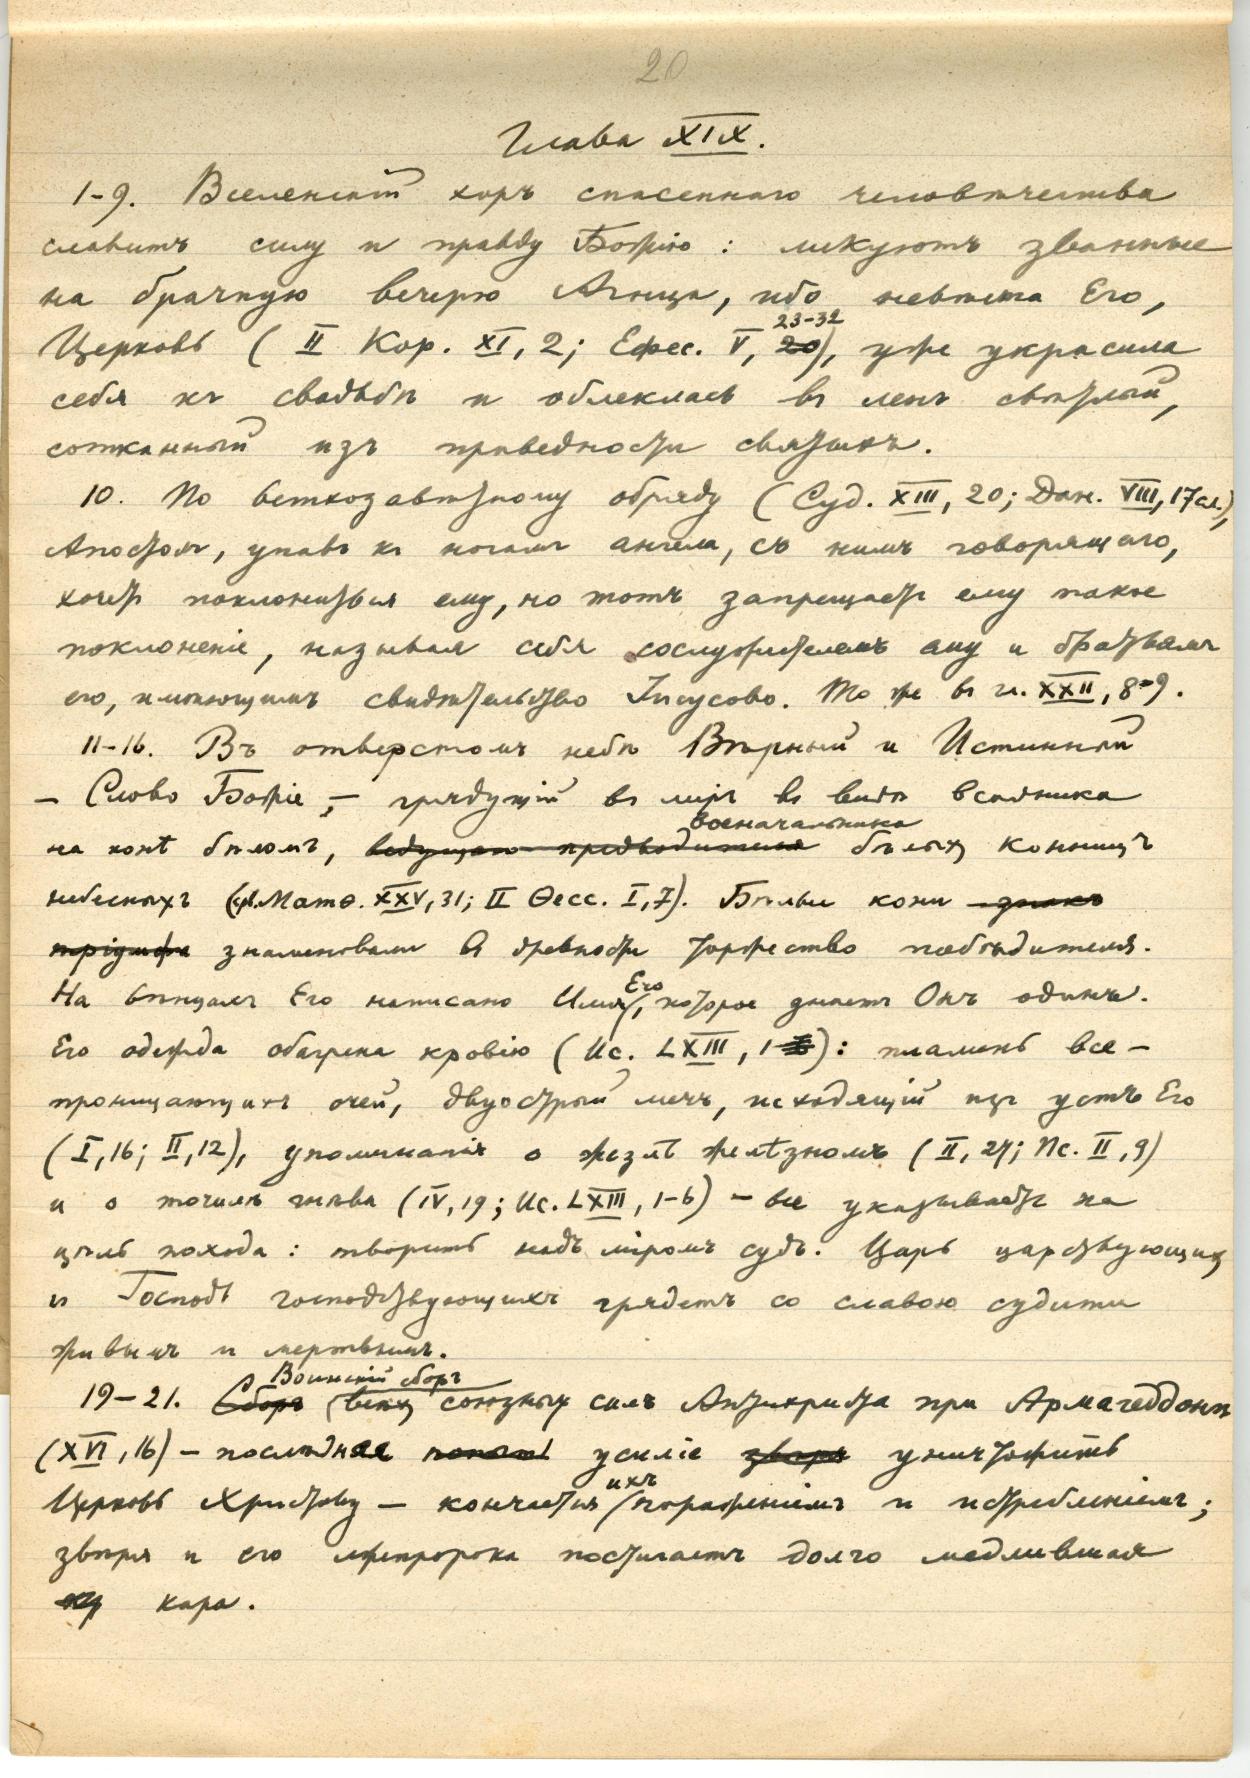 20
Глава XIX.
1-9. Вселенскій хоръ спасеннаго человѣчества
славитъ силу и правду Божію: ликуютъ званные
на брачную вечерю Агнца, ибо невѣста Его,
23-32
Церковь (II Кор. XI, 2; Ефес. V, 20), уже украсила
себя къ свадьбѣ и облеклась въ ленъ свѣтлый,
сотканный изъ праведности святыхъ.
10. По ветхозавѣтному обряду (Суд. XIII, 20; Дан. VIII, 17 сл.),
Апостолъ, упавъ къ ногамъ ангела, съ нимъ говорящаго,
хочетъ поклониться ему, но тотъ запрещаетъ ему такое
поклоненіе, называя себя сослужителемъ ему и братьямъ
его, имѣющимъ свидѣтельство Іисусово. То же въ гл. XXII, 8-9.
11-16. Въ отверстомъ небѣ Вѣрный и Истинный
— Слово Божіе, — грядущій въ міръ въ видѣ всадника
военачальника
на конѣ бѣломъ, ведущаго предводителя бѣлыхъ конницъ
небесныхъ (ср. Матѳ. XXV, 31; II Ѳесс. I, 7). Бѣлые кони знакъ
тріумфа знаменовали въ древности торжество побѣдителя.
Его
На вѣнцахъ Его написано Имя, которое знаетъ Онъ одинъ.
Его одежда обагрена кровію (Ис. LXIII, 1-3): пламень все-
проницающихъ очей, двуострый мечъ, исходящій изъ устъ Его
(I, 16; II, 12), упоминанія о жезлѣ желѣзномъ (II, 27; Пс. II, 9)
и о точилѣ гнѣва (IV, 19; Ис. LXIII, 1-6) — все указываетъ на
цѣль похода: творить надъ міромъ судъ. Царь царствующихъ
и Господь господствующихъ грядетъ со славою судити
живымъ и мертвымъ.
Воинскій сборъ
19-21. Сборъ всѣхъ союзныхъ силъ Антихриста при Армагеддонѣ
(XVI, 16) — послѣднее усиліе звѣря уничтожить
ихъ
Церковь Христову — кончается пораженіемъ и истребленіемъ;
звѣря и его лжепророка постигаетъ долго медлившая
кара.